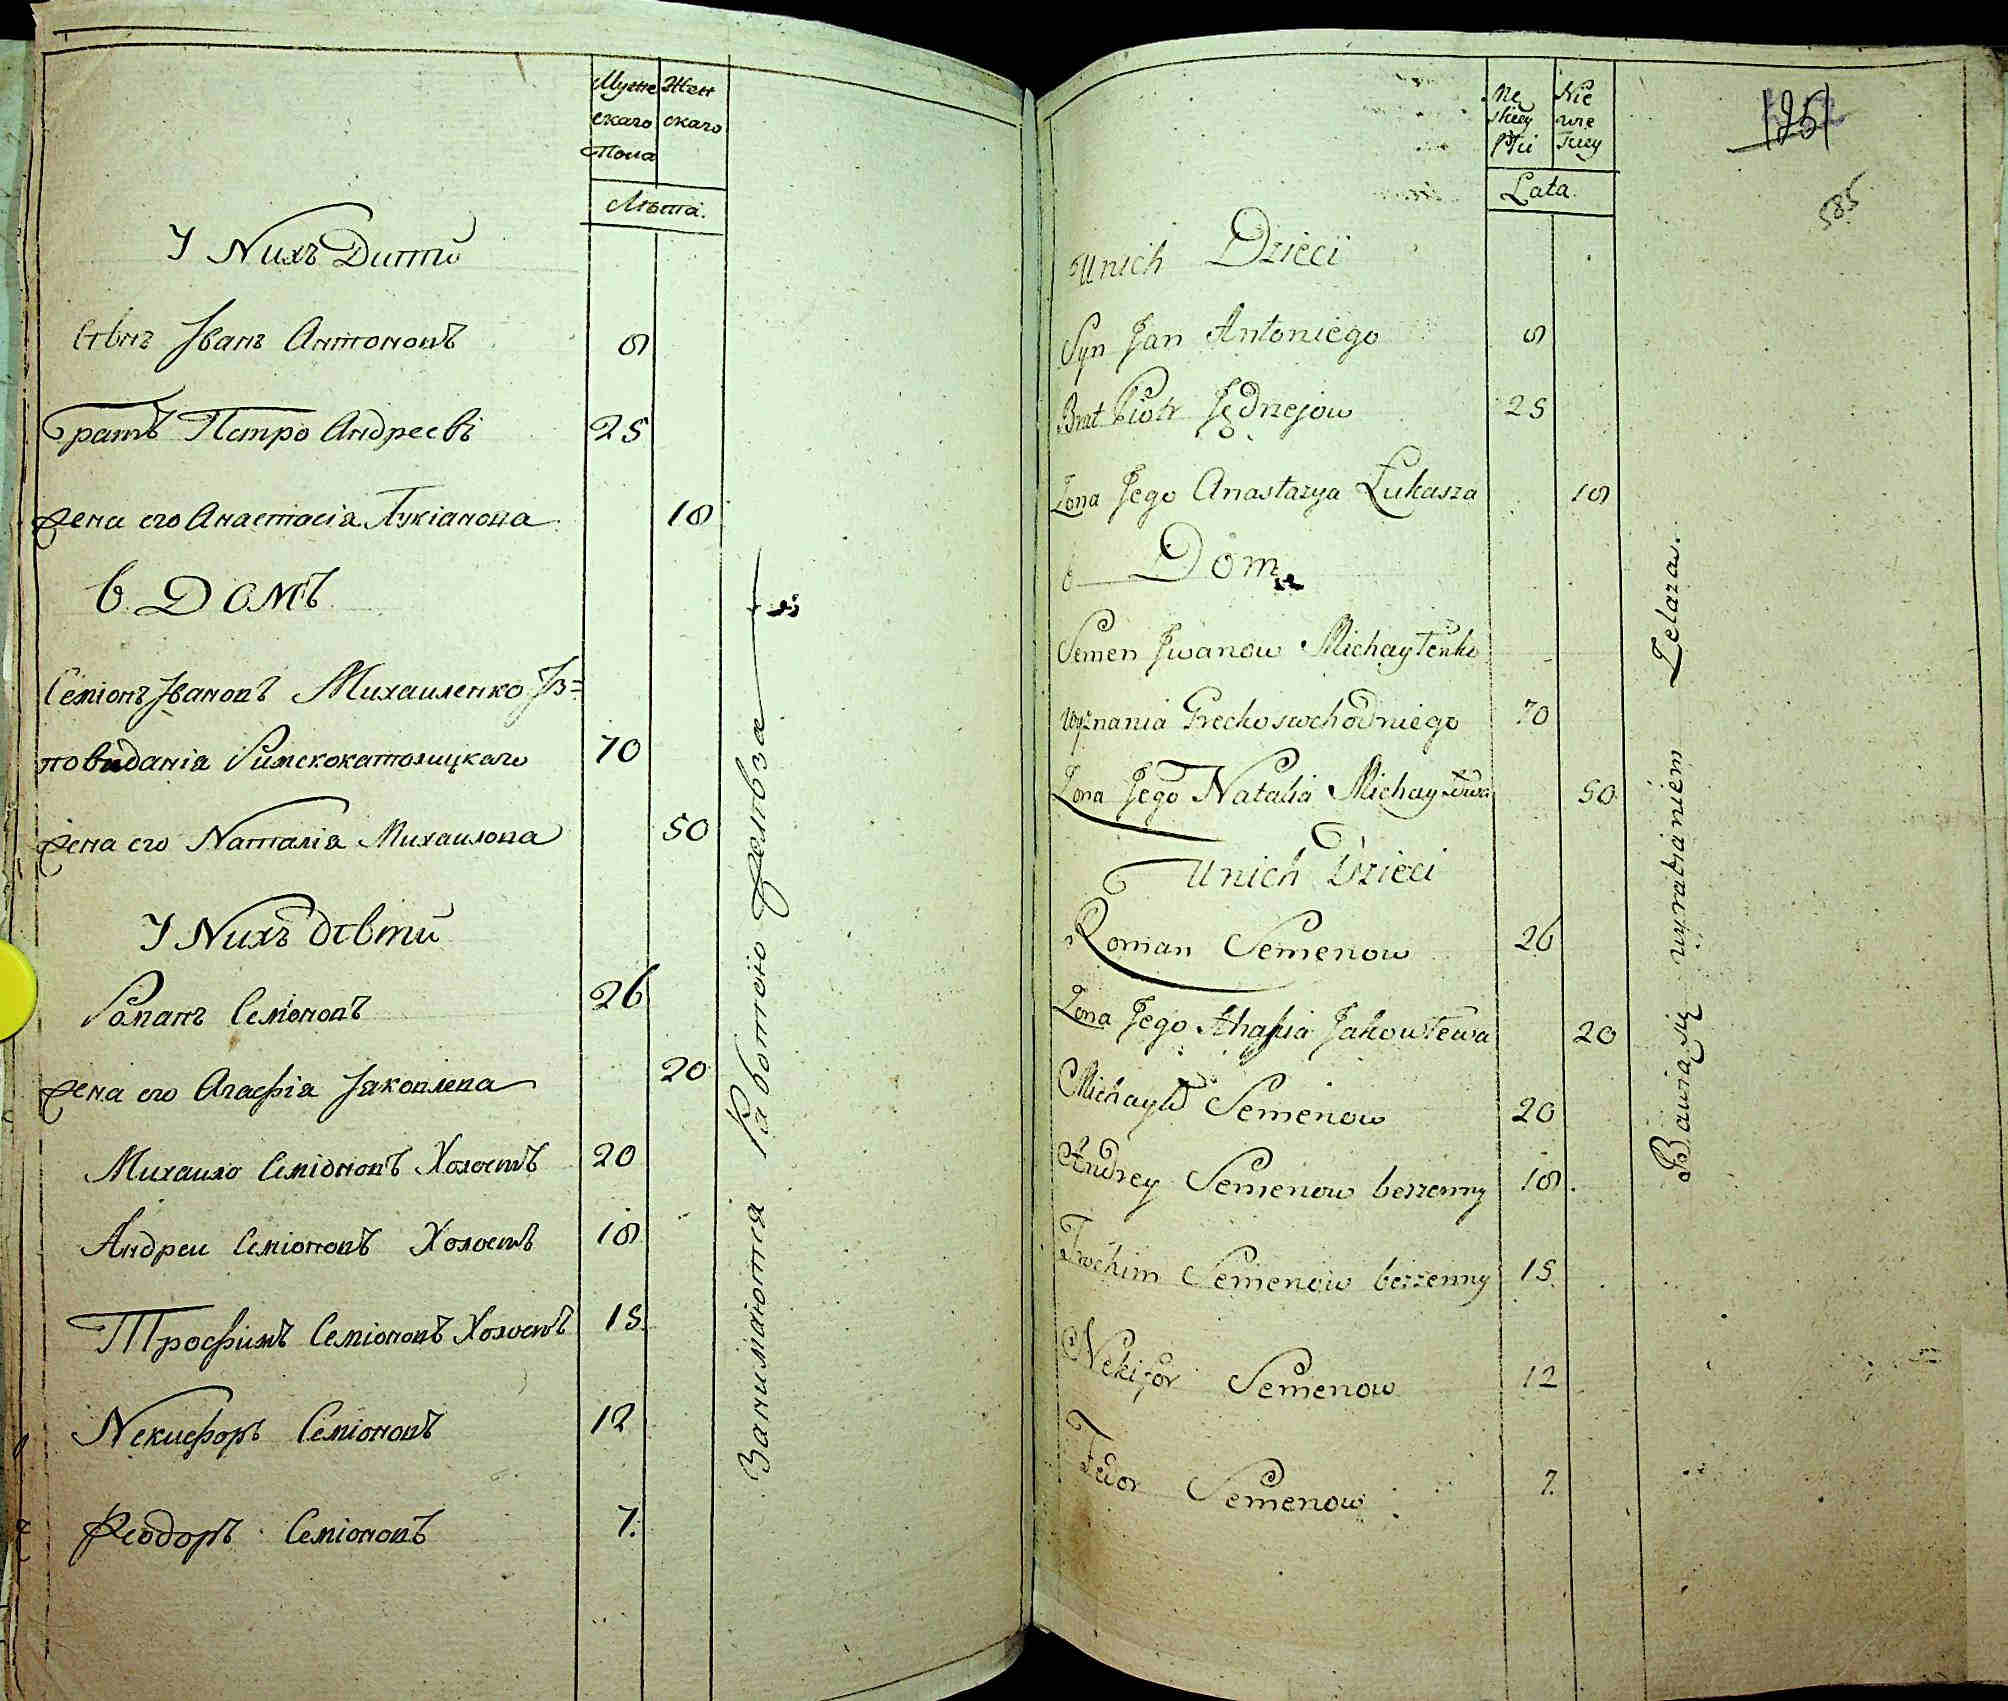 Муже Жен
скаго скаго
Пола
Лѣта.
У Nихъ Дити
сынъ Іванъ Антоновъ 8
Братъ Петро Андреевъ 25
Жена его Анастасія Лукіанова 18
6. Домъ
Семіонъ Івановъ Михаиленко Із=
повиданія Римскокатолицкаго 70
Жена его Nаталія Михаилова 50
У Nихъ дѣти
Романъ Семіоновъ 26
Жена его Агафія Іяковлева 20
Михаило Семіоновъ Холостъ 20
Андреи Семіоновъ Холостъ 18
Трофимъ Семіоновъ Холостъ 15
Nекифоръ Семіоновъ 12
Феодоръ Семіоновъ 7.
Занимаются Работою Желѣза
Mę Nie
skiey wie
Płci skiey
Lata.
125
585
Unich Dzieci
Syn Jan Antoniego 8
Brat Piotr Jędrzejow 25
Zona Jego Anastazya Łukasza 18
6 Dom
Semen Jwanow Michayłenko
wyznania Greckoswchodniego 70
Zona Jego Natalia Michayłowa 50
Unich Dzieci
Roman Semenow 26
Zona Jego Ahafia Jakowlewa 20
Michayło Semenow 20
Andrey Semenow bezzenny 18
Trochim Semenow bezzenny 15
Nekifor Semenow 12
Fedor Semenow 7.
Bawią się wyrabianiem Zelaza.